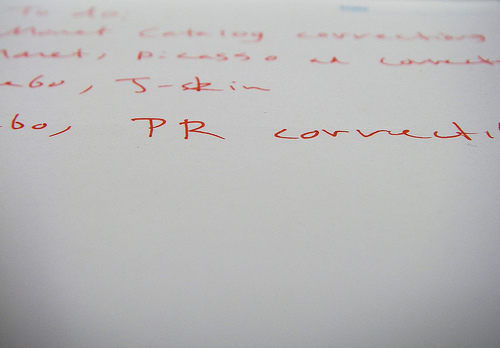 To do:
Monet Catalog corrections
Manet, Picasso
ebo, J-skin
ebo, PR correcti